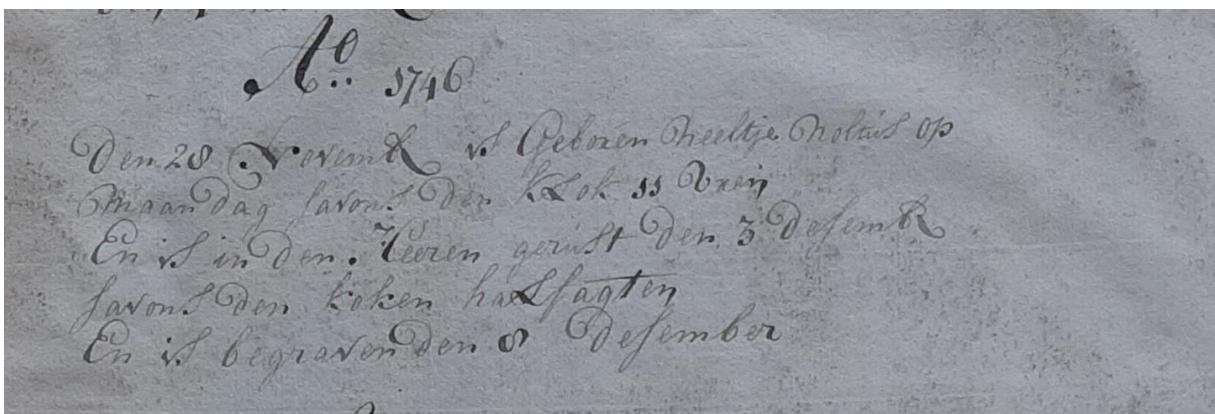 Ao. 1746
Den 28 Novemb is Geboren Neeltje Noltus op
Maandag savons den klok 11 Uren
En is in den Heeren gerust den 3 desemb
savons den koken half agten
En is begraven den 8 desember